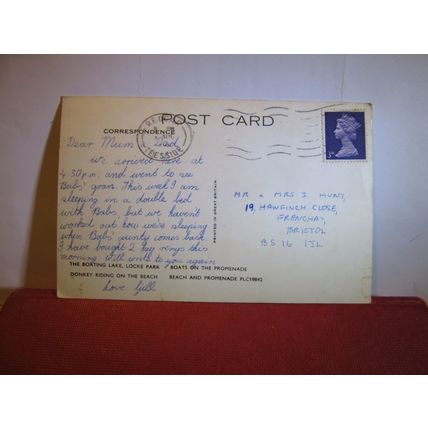 POST CARD
CORRESPONDENCE
REDCAR
TEESSIDE
3D
Dear Mum & Dad
we arrived here at
4.30pm and went to see
Babs' gran. This week I am
sleeping in a double bed
with Babs, but we haven't
worked out how we're sleeping
when Babs' aunty comes back
I have bought 2 key rings this
morning. Will write to you again
THE BOATING LAKE, LOCKE PARK BOATS ON THE PROMENADE
DONKEY RIDING ON THE BEACH BEACH AND PROMENADE PLC19842
Love Gill
PRINTED IN GREAT BRITAIN
MR & MRS I. HUNT,
19, HAWFINCH CLOSE,
FRENCHAY,
BRISTOL
BS16 1SL